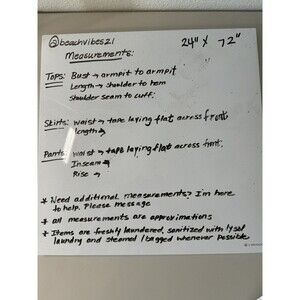 @beachvibes21
24" x 72"
Measurements:
Tops: Bust → armpit to armpit
Length → shoulder to hem
Shoulder seam to cuff.
Skirts: waist → tape laying flat across front
length →
Pants: waist → tape laying flat across front.
Inseam →
Rise →
* Need additional measurements? I'm here
to help. Please message
* all measurements are approximations
* Items are freshly laundered, sanitized with lysol
laundry and steamed / bagged whenever possible